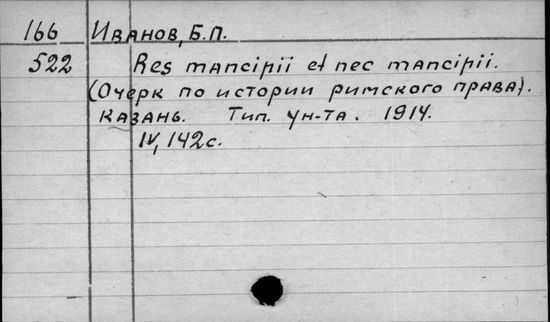 166 Иванов, Б.П.
522 Res mancipii et nec mancipii.
(Очерк по истории римского права).
Казань. Тип. ун-та. 1914.
IV, 142с.